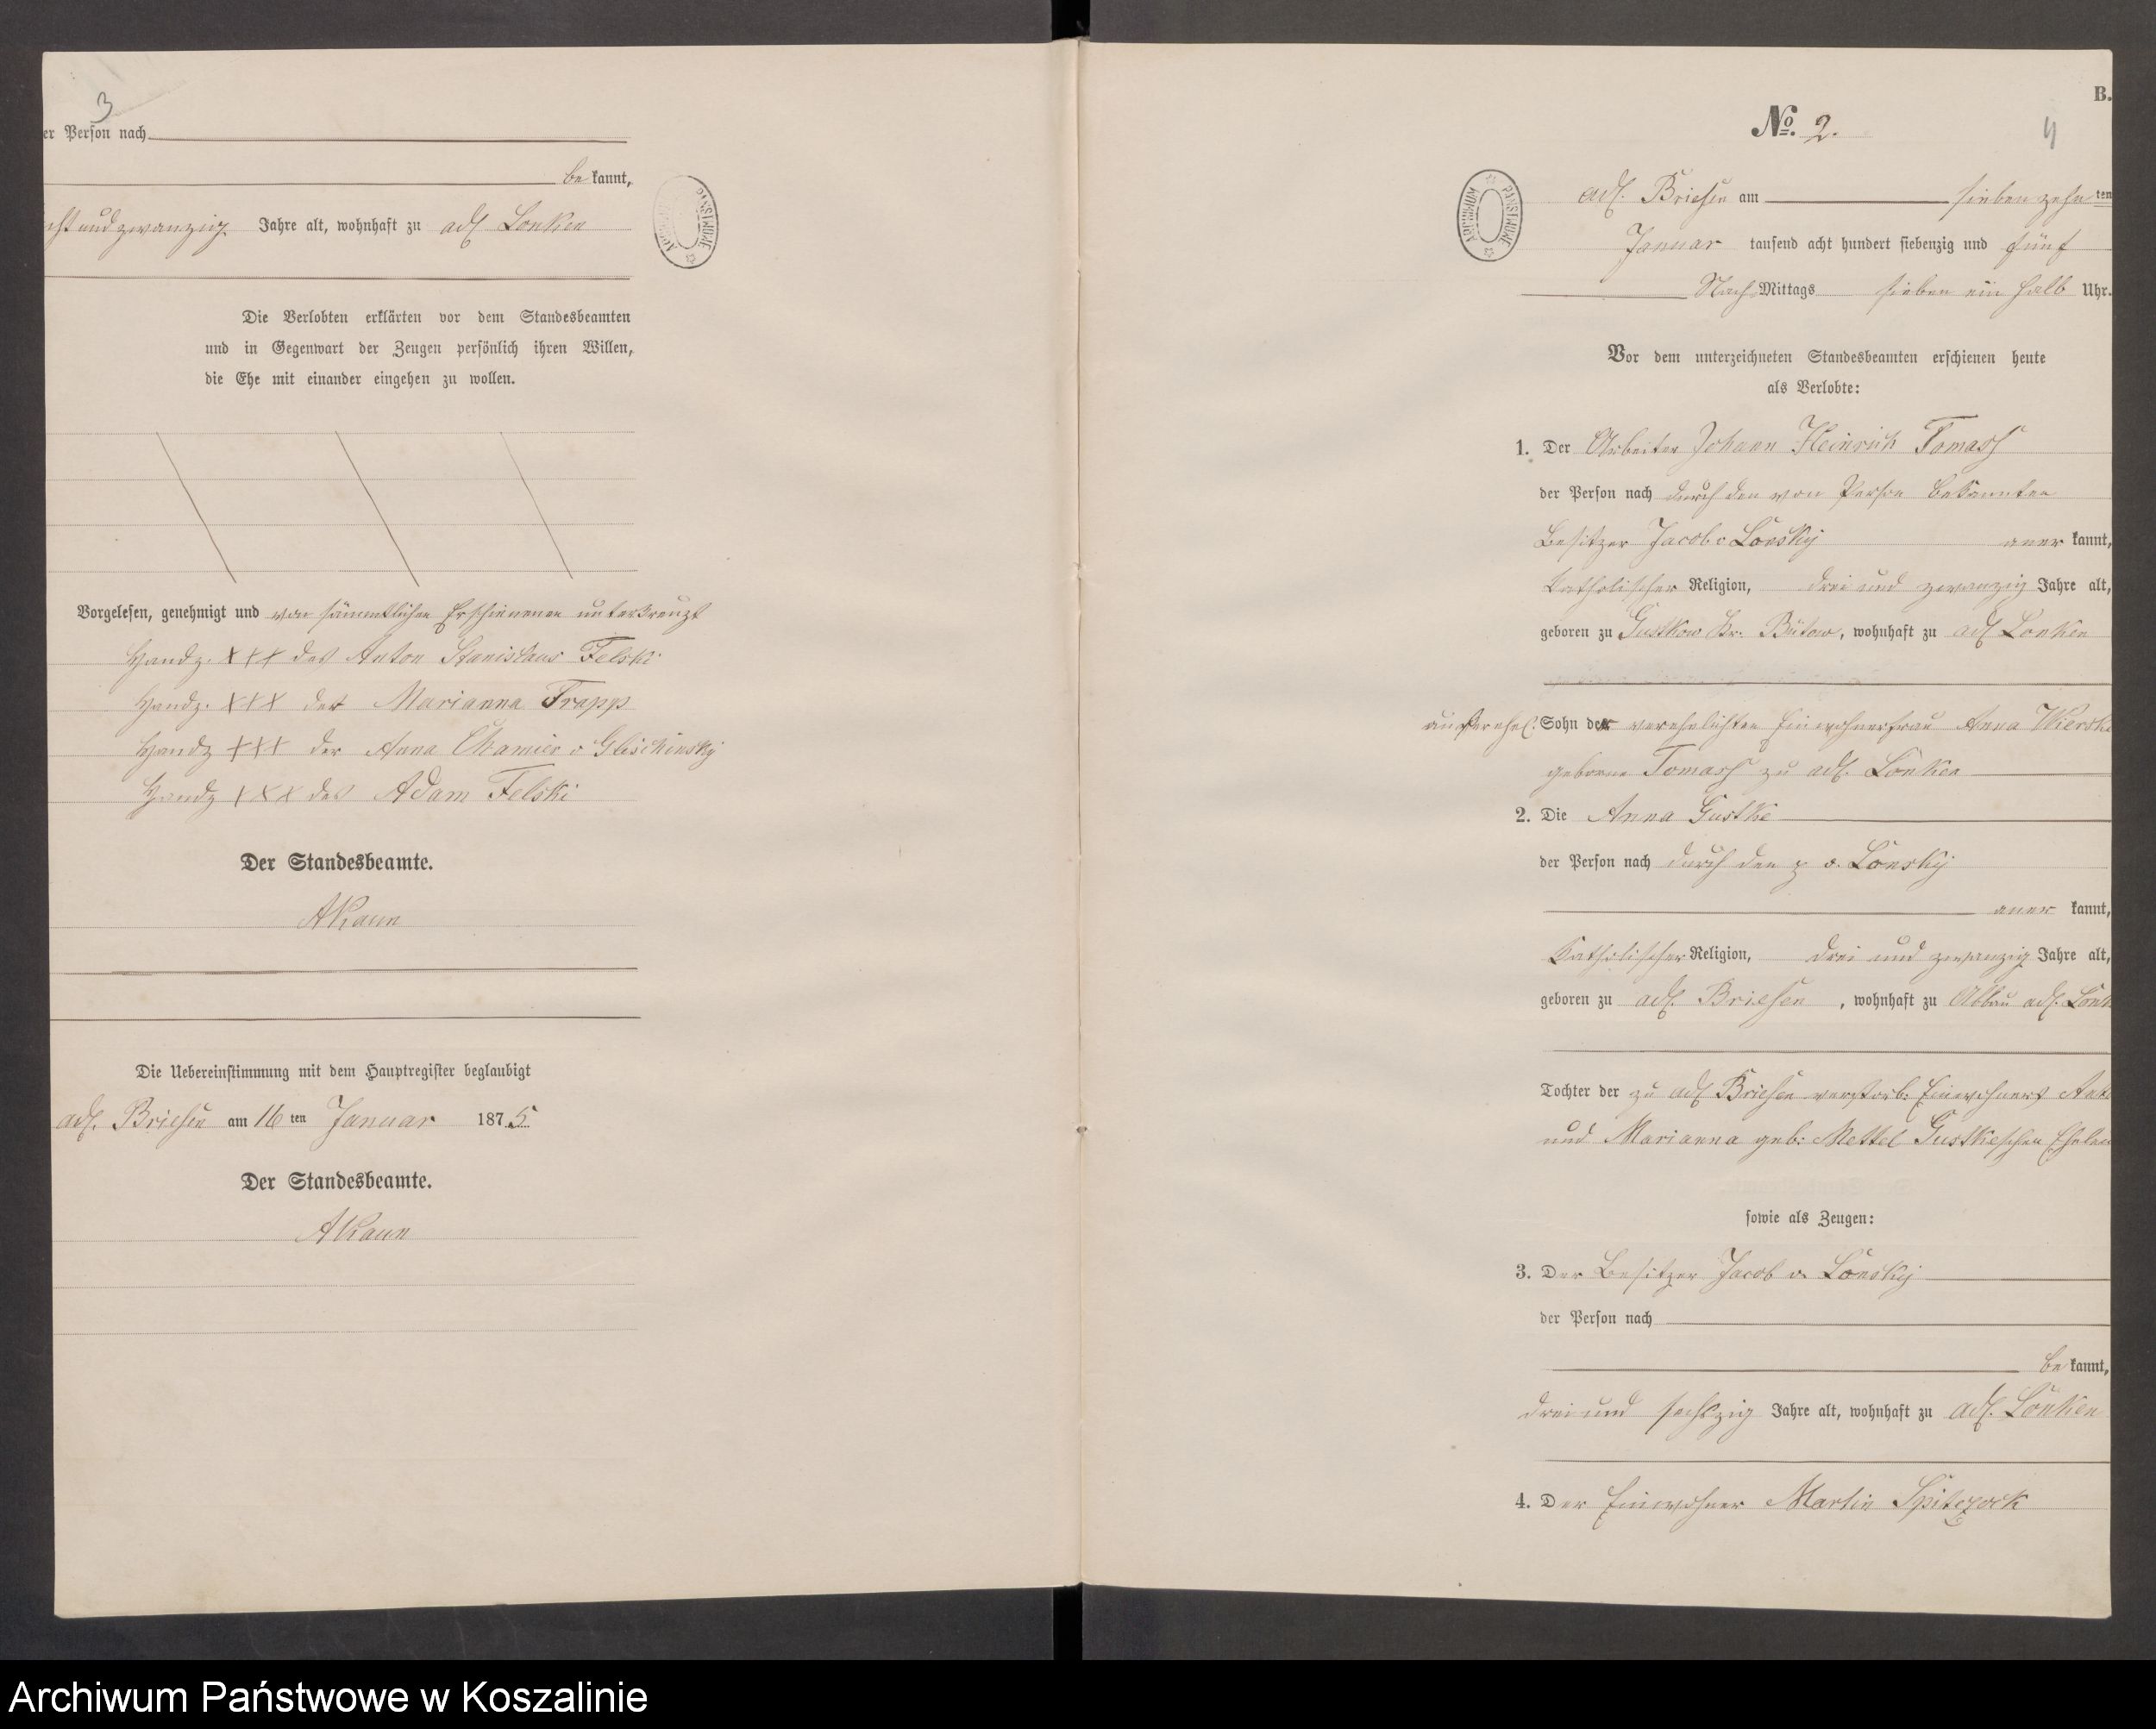 3
er Person nach
be kannt,
cht und zwanzig Jahre alt, wohnhaft zu adl Lonken
Die Verlobten erklärten vor dem Standesbeamten
und in Gegenwart der Zeugen persönlich ihren Willen,
die Ehe mit einander eingehen zu wollen.
Vorgelesen, genehmigt und von sämmtlichen Erschienenen unterkreuzt
Handz. XXX des Anton Stanislaus Felski
Handz. XXX der Marianna Trapp
Handz XXX der Anna Chamier v Glischinsky
Handz XXX des Adam Felski
Der Standesbeamte.
AKaun
Die Uebereinstimmung mit dem Hauptregister beglaubigt
adl. Briesen am 16 ten Januar 1875
Der Standesbeamte.
AKaun
ARCHIWUM PAŃSTWOWE
B.
No. 2.
4
ARCHIWUM PAŃSTWOWE
adl. Briesen am siebenzehn ten
Januar tausend acht hundert siebenzig und fünf
Nach Mittags sieben ein halb Uhr.
Vor dem unterzeichneten Standesbeamten erschienen heute
als Verlobte:
1. Der Arbeiter Johann Heinrich Tomass
der Person nach durch den von Person bekannten
Besitzer Jacob v Lonsky aner kannt,
katholischer Religion, drei und zwanzig Jahre alt,
geboren zu Gustkow Kr. Bütow, wohnhaft zu adl Lonken
außerehel. Sohn der verehelichten Einwohnerfrau Anna Wierske
geborne Tomass zu adl. Lonken
2. Die Anna Gustke
der Person nach durch den p v. Lonsky
aner kannt,
katholischer Religion, drei und zwanzig Jahre alt,
geboren zu adl. Briesen, wohnhaft zu Abbau adl. Lonk
Tochter der zu adl Briesen verstorb. Einwohners
und Marianna geb: Mettel Gustkeschen Eheleu
sowie als Zeugen:
3. Der Besitzer Jacob v. Lonsky
der Person nach
be kannt,
drei und sechszig Jahre alt, wohnhaft zu adl. Lonken
4. Der Einwohner Martin Spitczock
Archiwum Państwowe w Koszalinie